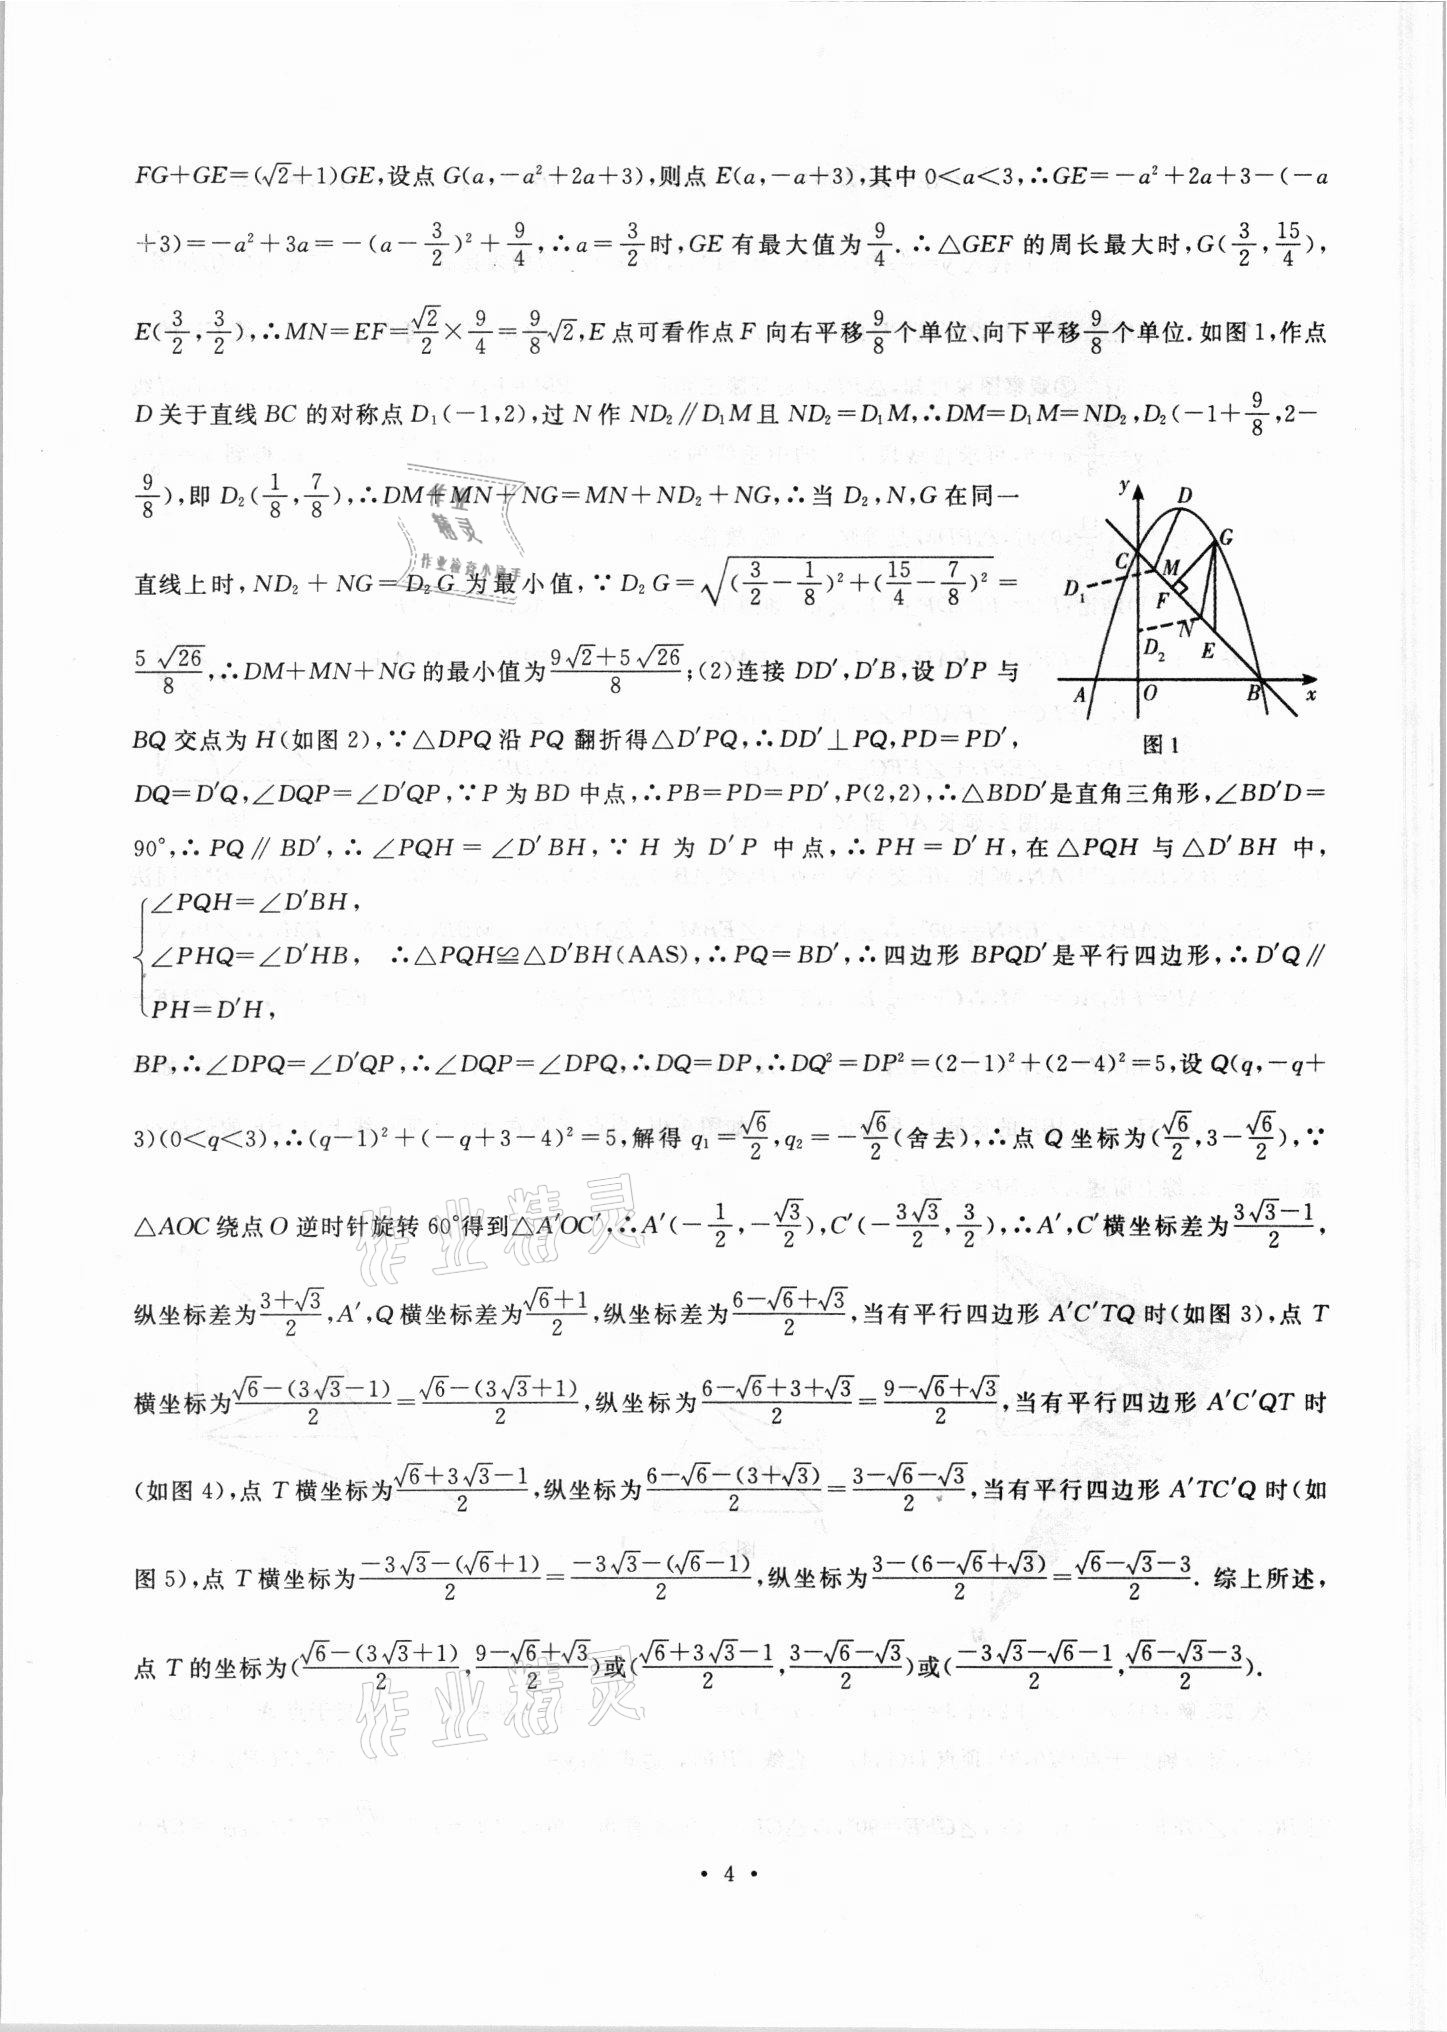 FG+GE=(√2+1)GE,设点 G(a,-a²+2a+3),则点 E(a,-a+3),其中 0<a<3,∴GE=-a²+2a+3-(-a
+3)=-a²+3a=-(a-3/2)²+9/4,∴a=3/2时,GE 有最大值为9/4.∴△GEF 的周长最大时,G(3/2,15/4),
E(3/2,3/2),∴MN=EF=√2/2×9/4=9/8√2,E 点可看作点 F 向右平移9/8个单位、向下平移9/8个单位.如图1,作点
D 关于直线 BC 的对称点 D₁(-1,2),过 N 作 ND₂∥D₁M 且 ND₂=D₁M,∴DM=D₁M=ND₂,D₂(-1+9/8,2-
9/8),即 D₂(1/8,7/8),∴DM+MN+NG=MN+ND₂+NG,∴当 D₂,N,G 在同一
直线上时,ND₂+NG=D₂G 为最小值,∵D₂G=√((3/2-1/8)²+(15/4-7/8)²)=
5√26/8,∴DM+MN+NG 的最小值为(9√2+5√26)/8;(2)连接 DD′,D′B,设 D′P 与
BQ 交点为 H(如图2),∵△DPQ 沿 PQ 翻折得△D′PQ,∴DD′⊥PQ,PD=PD′,
DQ=D′Q,∠DQP=∠D′QP,∵P 为 BD 中点,∴PB=PD=PD′,P(2,2),∴△BDD′是直角三角形,∠BD′D=
90°,∴PQ∥BD′,∴∠PQH=∠D′BH,∵H 为 D′P 中点,∴PH=D′H,在△PQH 与△D′BH 中,
∠PQH=∠D′BH,
∠PHQ=∠D′HB, ∴△PQH≌△D′BH(AAS),∴PQ=BD′,∴四边形 BPQD′是平行四边形,∴D′Q∥
PH=D′H,
BP,∴∠DPQ=∠D′QP,∴∠DQP=∠DPQ,∴DQ=DP,∴DQ²=DP²=(2-1)²+(2-4)²=5,设 Q(q,-q+
3)(0<q<3),∴(q-1)²+(-q+3-4)²=5,解得 q₁=√6/2,q₂=-√6/2(舍去),∴点 Q 坐标为(√6/2,3-√6/2),∵
△AOC 绕点 O 逆时针旋转 60°得到△A′OC′,∴A′(-1/2,-√3/2),C′(-3√3/2,3/2),∴A′,C′横坐标差为(3√3-1)/2,
纵坐标差为(3+√3)/2,A′,Q 横坐标差为(√6+1)/2,纵坐标差为(6-√6+√3)/2,当有平行四边形 A′C′TQ 时(如图3),点 T
横坐标为(√6-(3√3-1))/2=(√6-(3√3+1))/2,纵坐标为(6-√6+3+√3)/2=(9-√6+√3)/2,当有平行四边形 A′C′QT 时
(如图4),点 T 横坐标为(√6+3√3-1)/2,纵坐标为(6-√6-(3+√3))/2=(3-√6-√3)/2,当有平行四边形 A′TC′Q 时(如
图5),点 T 横坐标为(-3√3-(√6+1))/2=(-3√3-(√6-1))/2,纵坐标为(3-(6-√6+√3))/2=(√6-√3-3)/2.综上所述,
点 T 的坐标为((√6-(3√3+1))/2,(9-√6+√3)/2)或((√6+3√3-1)/2,(3-√6-√3)/2)或((-3√3-√6-1)/2,(√6-√3-3)/2).
y
D
G
C
M
D₁
F
N
D₂
E
A
O
B
x
图1
作业
精灵
作业检查小助手
作业精灵
作业精灵
• 4 •